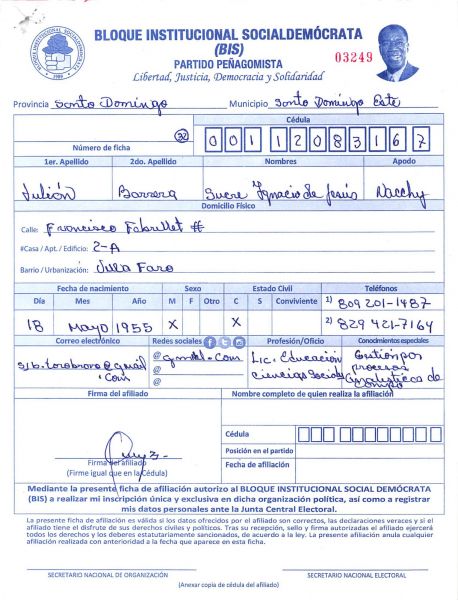 BLOQUE INSTITUCIONAL SOCIALDEMÓCRATA
(BIS)
PARTIDO PEÑAGOMISTA
Libertad, Justicia, Democracia y Solidaridad
03249
Provincia Santo Domingo Municipio Santo Domingo Este
Cédula
Número de ficha 32 0 0 1 1 2 0 8 3 1 6 7
1er. Apellido 2do. Apellido Nombres Apodo
Julión Barrera Sucre Ignacio de Jesús Nacchy
Domicilio Físico
Calle: Francisco Fabrillet #
#Casa / Apt. / Edificio: 2-A
Barrio / Urbanización: Villa Faro
Fecha de nacimiento Sexo Estado Civil Teléfonos
Día Mes Año M F Otro C S Conviviente 1) 809 201-1487
18 Mayo 1955 X X 2) 829 421-7164
Correo electrónico Redes sociales Profesión/Oficio Conocimientos especiales
@gmail.com Lic. Educación Gestión por
@gmail Ciencias Sociales procesos
.com @ de
@
Firma del afiliado Nombre completo de quien realiza la afiliación
Cédula
Posición en el partido
Fecha de afiliación
Firma del afiliado
(Firme igual que en la Cédula)
Mediante la presente ficha de afiliación autorizo al BLOQUE INSTITUCIONAL SOCIAL DEMÓCRATA
(BIS) a realizar mi inscripción única y exclusiva en dicha organización política, así como a registrar
mis datos personales ante la Junta Central Electoral.
La presente ficha de afiliación es válida si los datos ofrecidos por el afiliado son correctos, las declaraciones veraces y si el
afiliado tiene el disfrute de sus derechos civiles y políticos. Tras su recepción, sello y firma autorizadas el afiliado ejercerá
todos los derechos y los deberes estatutariamente sancionados, de acuerdo a la ley. La presente afiliación anula cualquier
afiliación realizada con anterioridad a la fecha que aparece en esta ficha.
SECRETARIO NACIONAL DE ORGANIZACIÓN SECRETARIO NACIONAL ELECTORAL
(Anexar copia de cédula del afiliado)